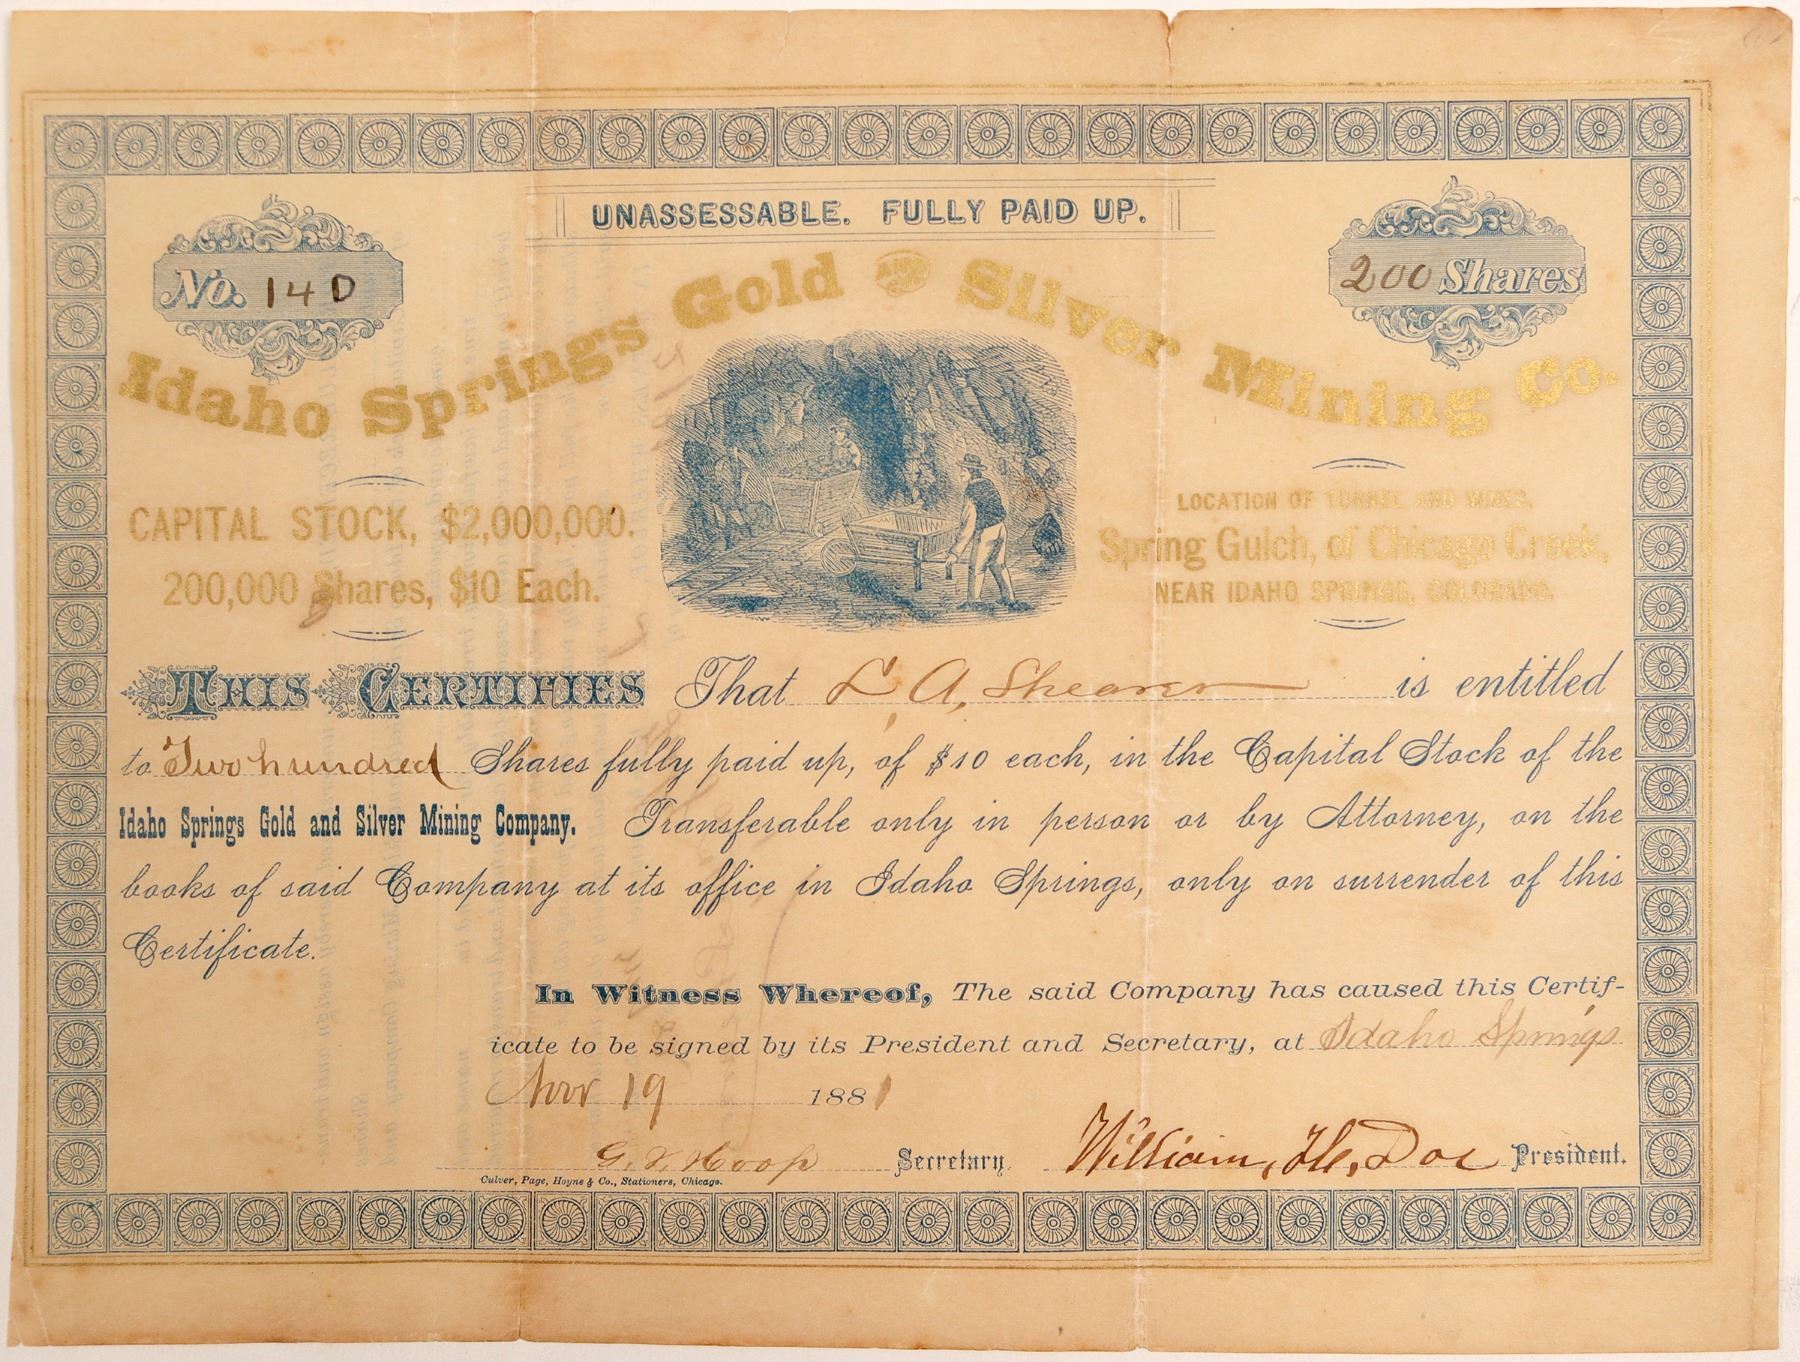 UNASSESSABLE. FULLY PAID UP.
No. 140
200 Shares
Idaho Springs Gold AND Silver Mining Co.
CAPITAL STOCK, $2,000,000.
200,000 Shares, $10 Each.
LOCATION OF TUNNEL AND MINES,
Spring Gulch, of Chicago Creek,
NEAR IDAHO SPRINGS, COLORADO.
THIS CERTIFIES That L. A. Shearer is entitled
to Two hundred Shares fully paid up, of $10 each, in the Capital Stock of the
Idaho Springs Gold and Silver Mining Company. Transferable only in person or by Attorney, on the
books of said Company at its office in Idaho Springs, only on surrender of this
Certificate.
In Witness Whereof, The said Company has caused this Certif-
icate to be signed by its President and Secretary, at Idaho Springs
Nov 19 1881
Hoop Secretary. William, H, Doe President.
Culver, Page, Hoyne & Co., Stationers, Chicago.